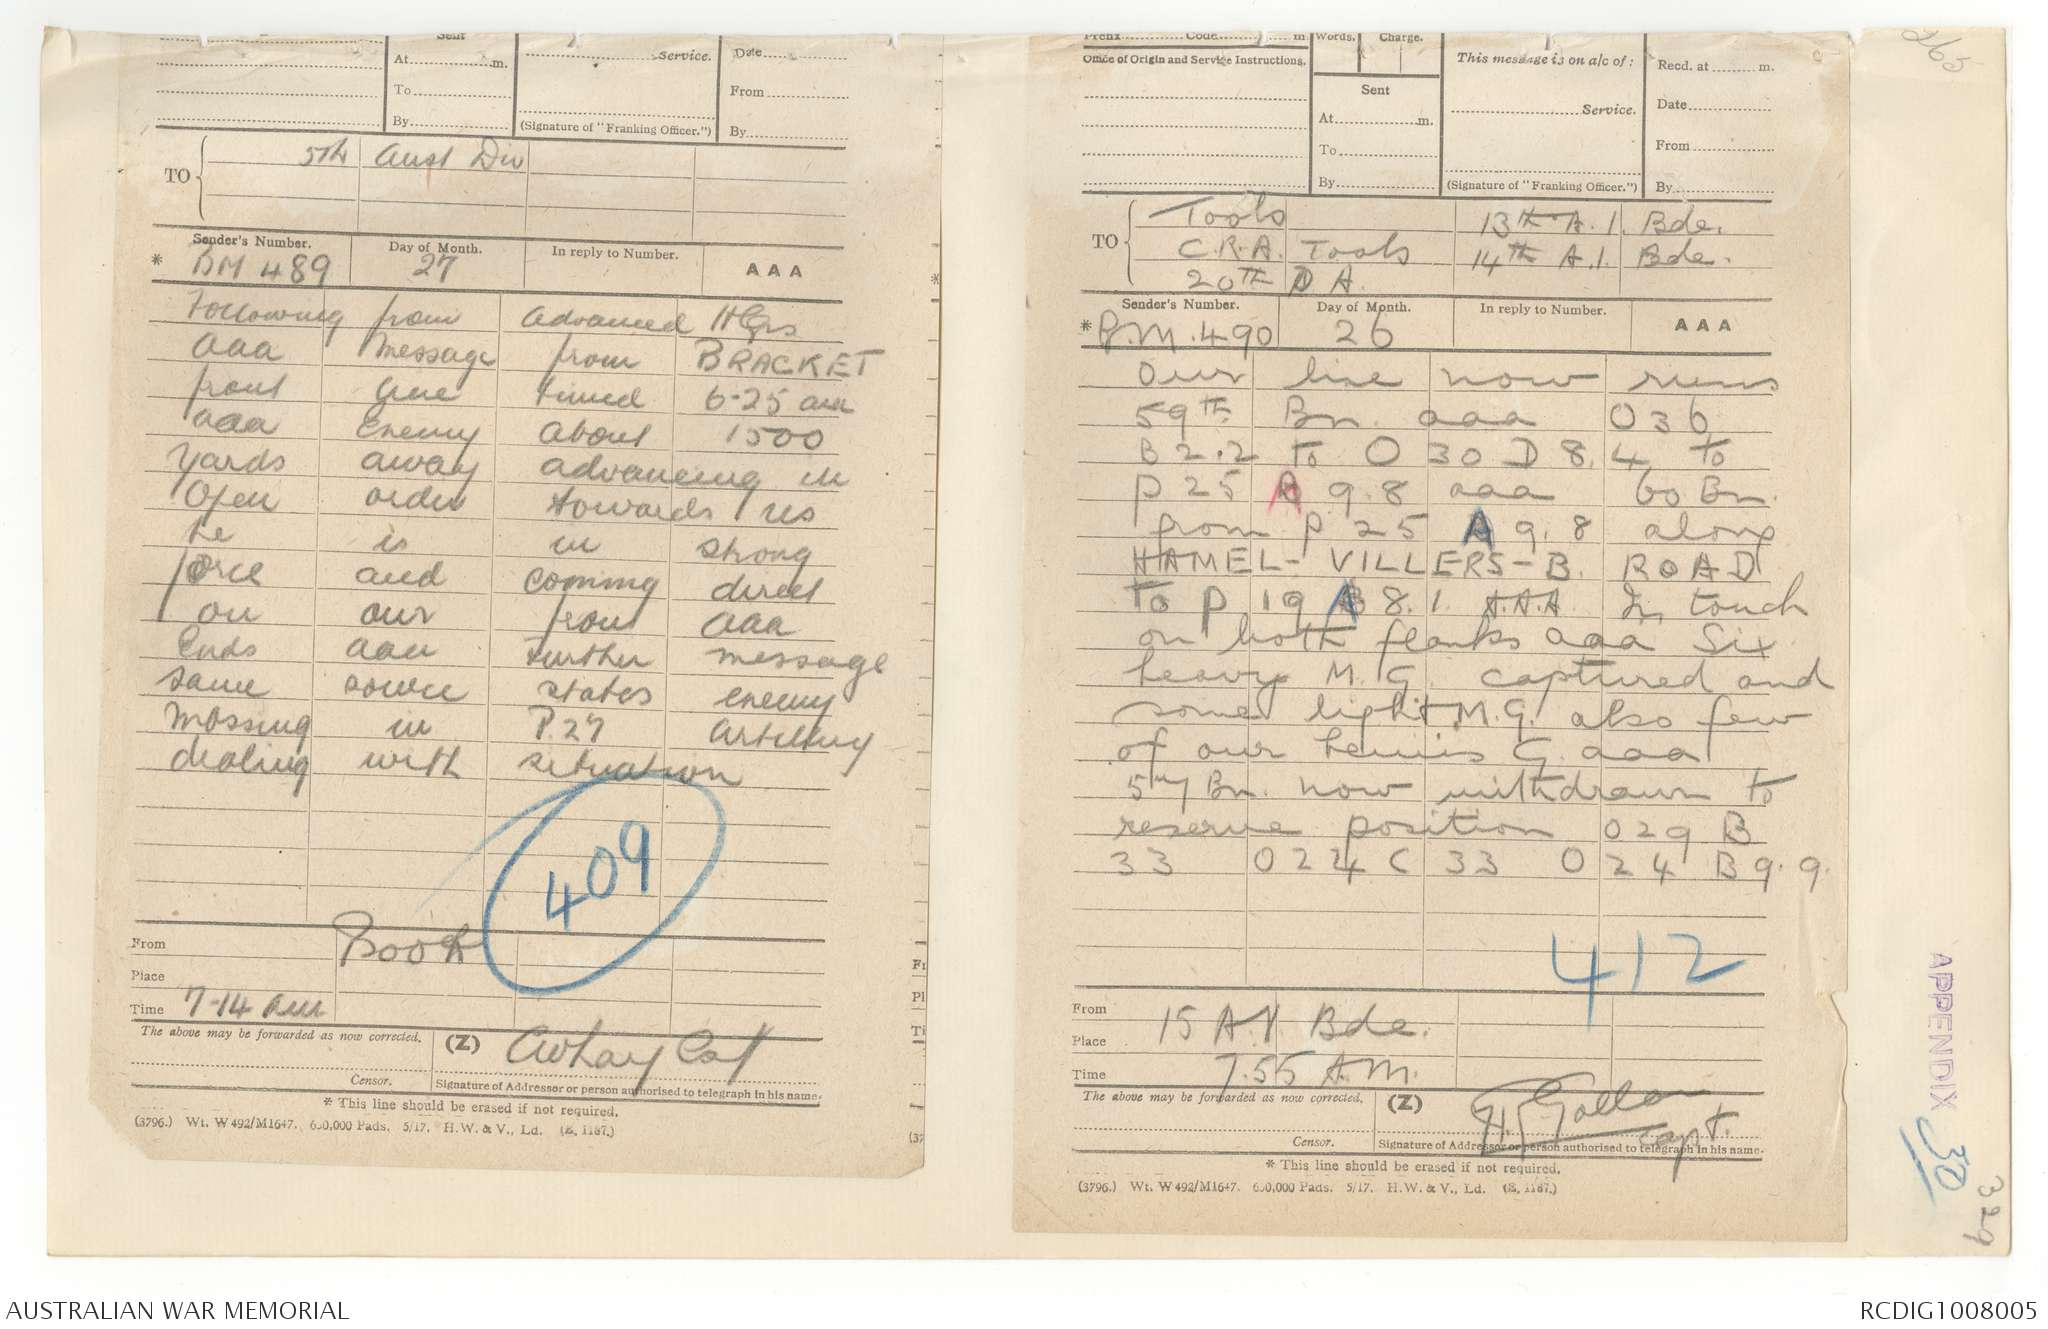 Sent
At...........m.
To
By
Service.
(Signature of "Franking Officer.")
Date
From
By
TO
5th Aust Div
Sender's Number.
Day of Month.
In reply to Number.
AAA
* BM 489
27
Following from advanced HQrs
aaa message from BRACKET
front line timed 6-25 am
aaa Enemy about 1500
yards away advancing in
Open order towards us
he is in strong
force and coming direct
on our front aaa
Ends aaa Further message
same source states enemy
massing in P.27 artillery
dealing with situation
409
From
Place
Time 7-14 am
The above may be forwarded as now corrected.
(Z)
Capt
Censor.
Signature of Addressor or person authorised to telegraph in his name.
* This line should be erased if not required.
(3796.) Wt. W492/M1647. 600,000 Pads. 5/17. H.W. & V., Ld. (E. 1187.)
Prefix Code m
Words.
Charge.
Office of Origin and Service Instructions.
Sent
At...........m.
To
By
This message is on a/c of:
Service.
(Signature of "Franking Officer.")
Recd. at ......... m.
Date
From
By
TO
Tools 13th A.I. Bde.
C.R.A. Tools 14th A.I. Bde.
20th D A.
Sender's Number.
Day of Month.
In reply to Number.
AAA
* B.M.490
26
Our line now runs
59th Bn. aaa O36
B 2.2 to O 30 D 8.4 to
P 25 A 9.8 aaa 60 Bn.
from P 25 A 9.8 along
HAMEL-VILLERS-B. ROAD
to P 19 A 8.1 A.A.A In touch
on both flanks aaa Six
heavy M.G. captured and
some light M.G. also few
of our Lewis G. aaa
57 Bn. now withdrawn to
reserve position O29 B
33 O 24 C 33 O 24 B 9.9.
412
From
15 A.I. Bde.
Place
Time
7.55 A.M.
The above may be forwarded as now corrected.
(Z)
Capt.
Censor.
Signature of Addressor or person authorised to telegraph in his name.
* This line should be erased if not required.
(3796.) Wt. W492/M1647. 600,000 Pads. 5/17. H.W. & V., Ld. (E. 1187.)
265
APPENDIX 30
329
AUSTRALIAN WAR MEMORIAL
RCDIG1008005